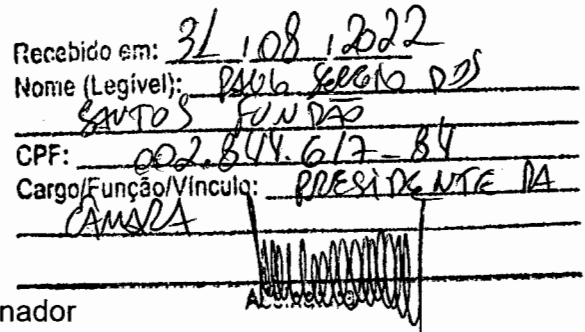 Recebido em: 31 / 08 / 2022
Nome (Legível): PAULO SERGIO DOS
SANTOS FUNDÃO
CPF: 002.844.617-84
Cargo/Função/Vínculo: PRESIDENTE DA
CÂMARA
nador